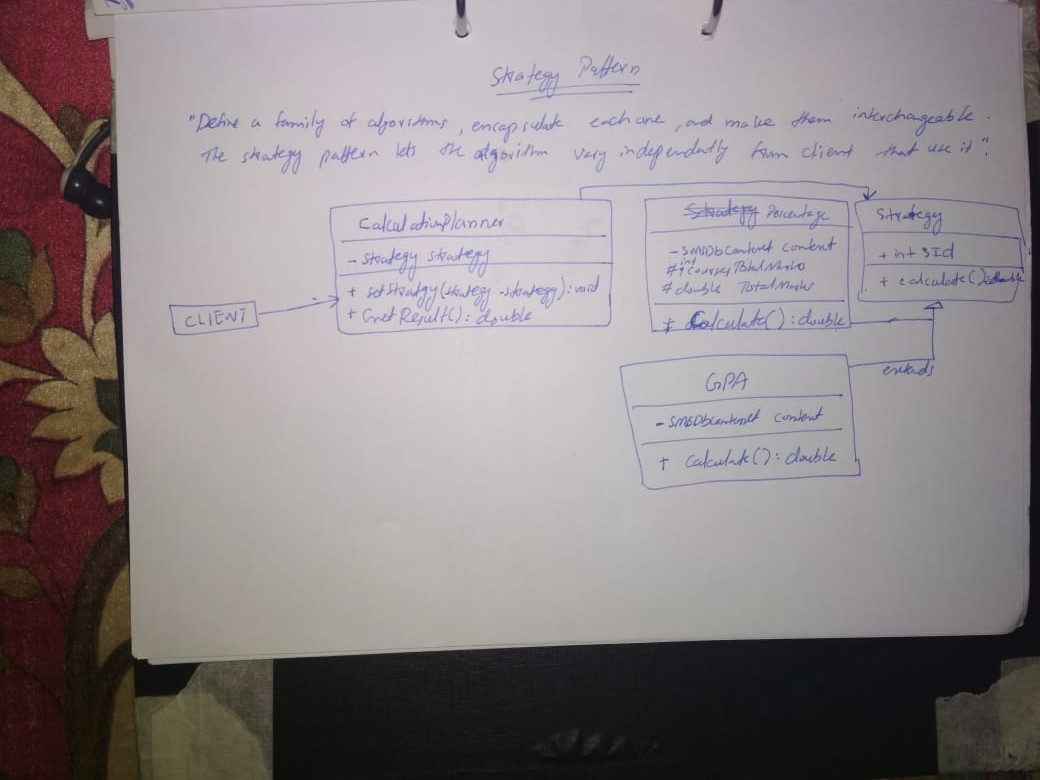 Strategy Pattern
"Define a family of algorithms, encapsulate each one, and make them interchangeable.
The strategy pattern lets the algorithm vary independently from client that use it".
CLIENT
CalculationPlanner
- strategy strategy
+ setStrategy(strategy strategy): void
+ GetResult(): double
Strategy Percentage
- SMSDbContext content
# int CoursesTotalMarks
# double TotalMarks
+ Calculate(): double
Strategy
+ int SId
+ calculate(): double
extends
GPA
- SMSDbContext content
+ Calculate(): double